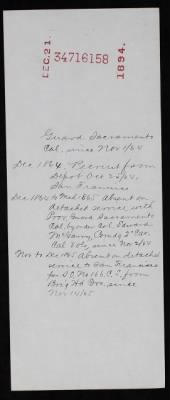 DEC. 21.
34716158
1894.
Guard Sacramento
Cal. since Nov 1/64
Dec 1864, Recruit from
Depot Oct 24/64,
San Francisco
Dec 1864 to Mch 1865 Absent on
detached service with
Prov. Guard Sacramento
Cal. by order Col. Edward
McGarry, Comdg 2" Cav.
Cal Vols, since Nov 2/64
Nov to Dec 1865 Absent on detached
service to San Francisco
for S.O. No 166. C.S. from
Brig Hd Qrs. since
Nov 14/65